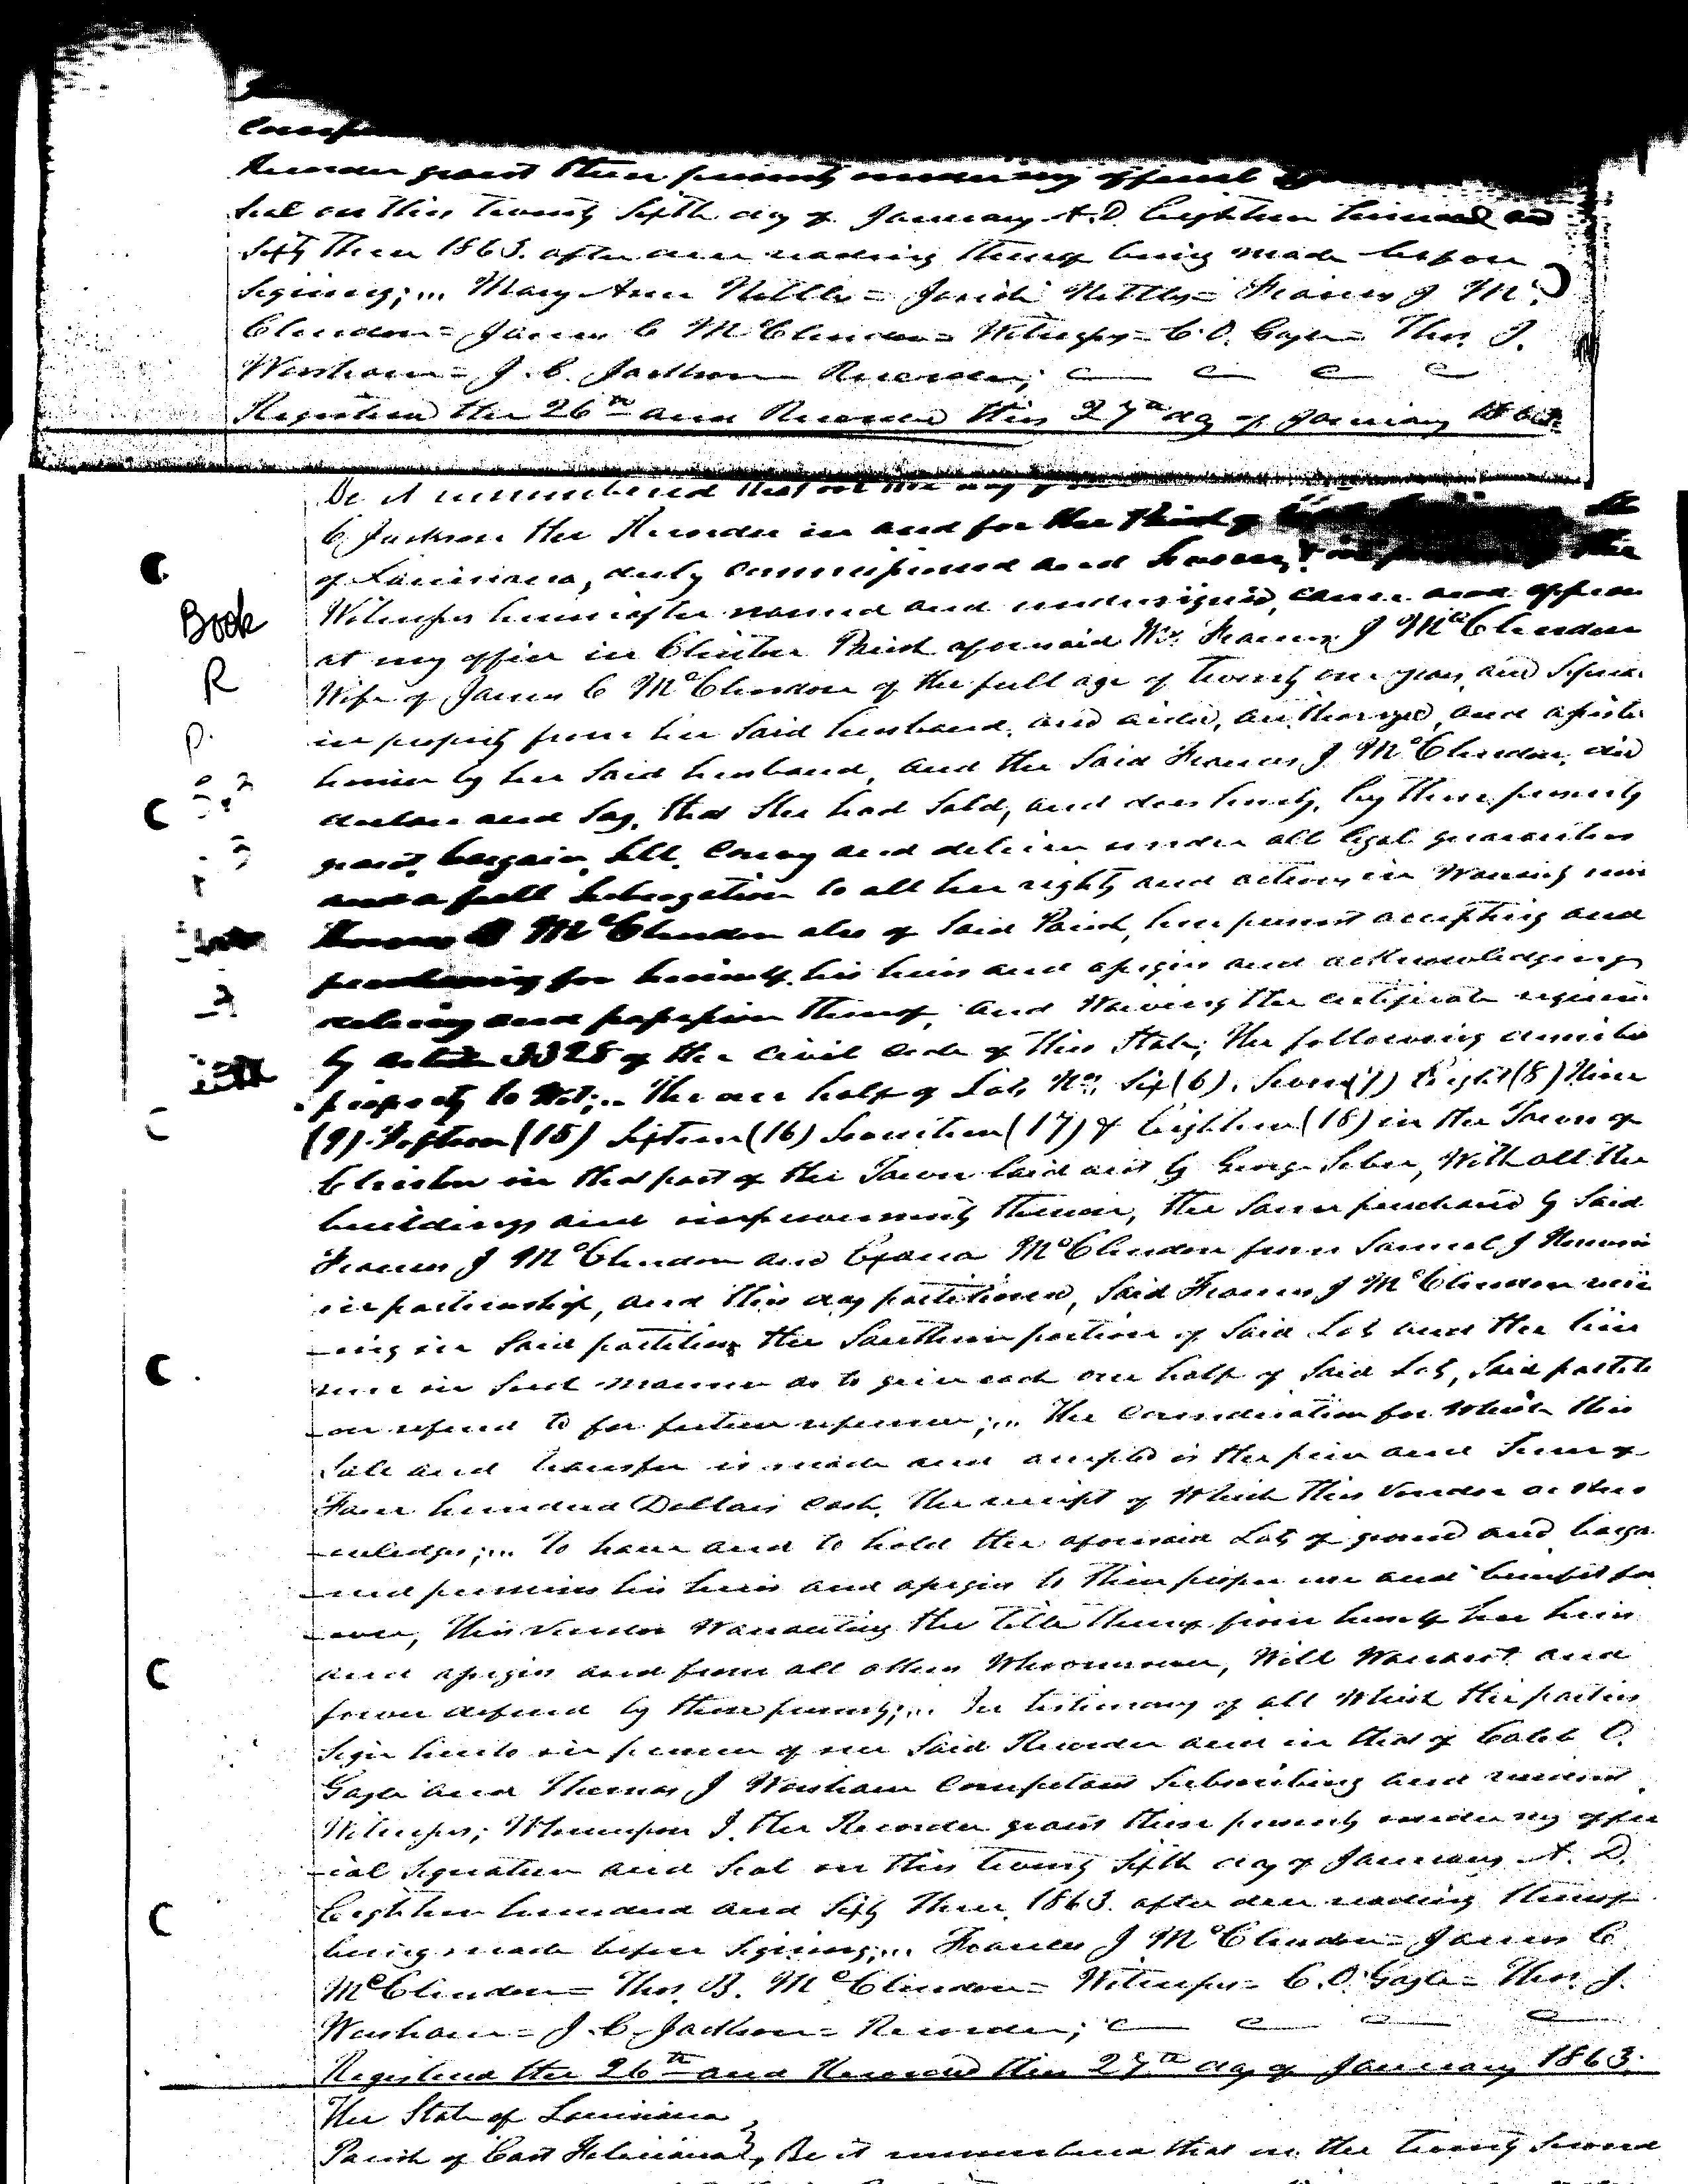 Recorder grant these presents under my official
Seal on this twenty Sixth day of January A.D. Eighteen hundred and
Sixty Three 1863. after due reading thereof being made before
Signing;... Mary Ann Nettles = Josiah Nettles = Frances J Mc
Clendon = James C McClendon = Witnesses = C. O. Gayle = Thos. J.
Worsham = J. C. Jackson Recorder;
Registered the 26th and Recorded this 27th day of January 1863.
Be it remembered that on this day
C. Jackson the Recorder in and for the Parish of
of Louisiana, duly commissioned and Sworn, & in presence of the
Witnesses hereinafter named and undersigned, came and appear
at my office in Clinton Parish aforesaid Mrs. Frances J McClendon
Wife of James C McClendon of the full age of twenty one years, and Separa
in property from her Said husband, and aided, authorized, and assisted
herein by her Said husband, and the Said Frances J McClendon, did
declare and Say, that She had Sold, and does hereby, by these presents
grant, bargain, Sell, Convey and deliver under all legal guarantees
and a full Subrogation to all her rights and actions in Warranty unto
McClendon also of Said Parish, here present accepting and
purchasing for himself, his heirs and assigns and acknowledging
delivery and possession thereof, and Waiving the certificate required
by article 3328 of the Civil Code of this State, the following described
property to Wit;... The one half of Lots Nos. Six (6), Seven (7) Eight (8) Nine
(9) Fifteen (15) Sixteen (16) Seventeen (17) & Eighteen (18) in the Town of
Clinton in that part of the Town laid out by George Sebor, With all the
buildings and improvements thereon, the Same purchased by Said
Frances J McClendon and McClendon from Samuel J
in partnership, and this day partitioned, Said Frances J McClendon receiv
-ing in Said partition the Southern portion of Said Lots and the line
run in Such manner as to give each one half of Said Lots, Said partiti
-on referred to for further reference;... The Consideration for Which this
Sale and transfer is made and accepted is the price and Sum of
Four hundred Dollars Cash, the receipt of Which this Vendor ackno
-wledges;... To have and to hold the aforesaid Lots of ground and barga
-ined premises his heirs and assigns to their proper use and benefit for
-ever, this Vendor Warranting the title thereof from herself her heirs
and assigns and from all others Whomsoever, Will Warrant and
forever defend by these presents;... In testimony of all Which the parties
Sign hereto in presence of me Said Recorder and in that of Caleb O.
Gayle and Thomas J Worsham Competent Subscribing and
Witnesses; Whereupon I, the Recorder grant these presents under my offic
-ial Signature and Seal on this twenty Sixth day of January A. D.
Eighteen hundred and Sixty Three, 1863. after due reading thereof
being made before Signing;... Frances J McClendon = James C
McClendon = Thos. B. McClendon = Witnesses = C. O. Gayle = Thos. J.
Worsham = J. C. Jackson = Recorder;
Registered the 26th and Recorded this 27th day of January 1863.
The State of Louisiana
Parish of East Feliciana } Be it remembered that on the twenty Second
Book
R
P.